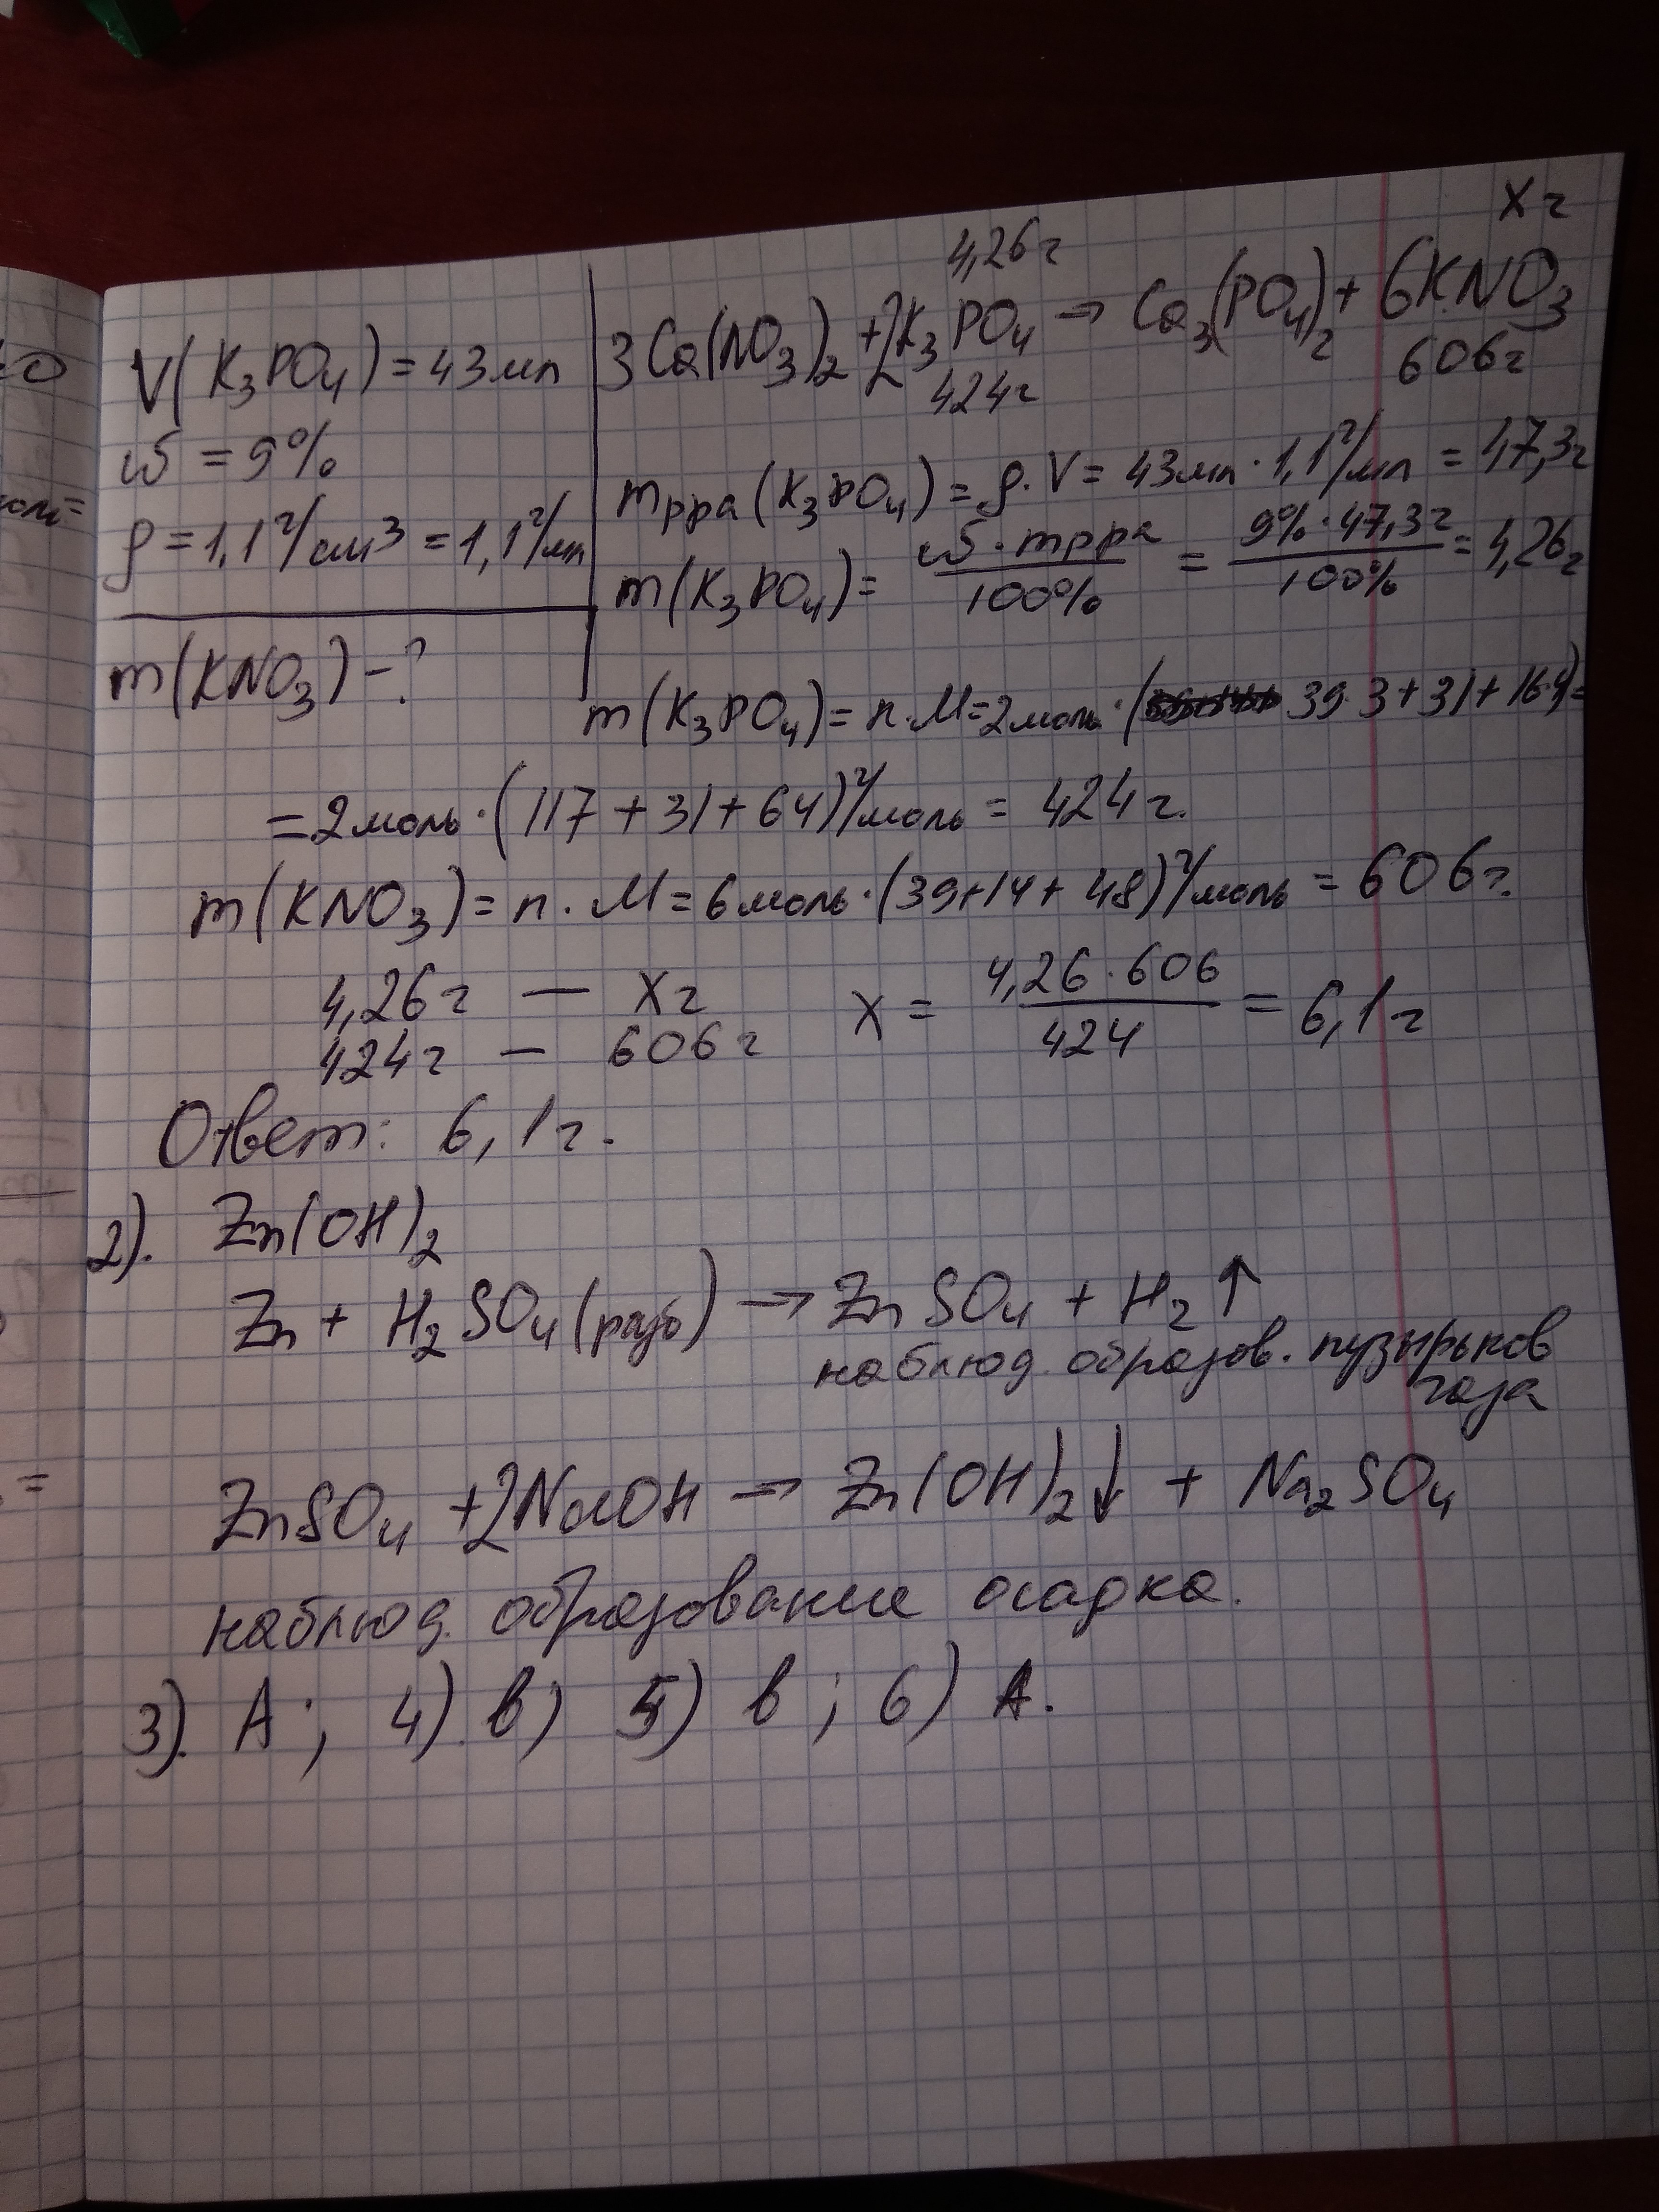 V(K₃PO₄) = 43мл
ω = 9%
ρ = 1,1 г/см³ = 1,1 г/мл
m(KNO₃) - ?
4,26г
xг
3Ca(NO₃)₂ + 2K₃PO₄ → Ca₃(PO₄)₂ + 6KNO₃
424г
606г
mрра(K₃PO₄) = ρ · V = 43мл · 1,1 г/мл = 47,3г
m(K₃PO₄) = ω · mрра / 100% = 9% · 47,3г / 100% = 4,26г
m(K₃PO₄) = n · M = 2моль · (39·3 + 31 + 16·4) =
= 2моль · (117 + 31 + 64) г/моль = 424г.
m(KNO₃) = n · M = 6моль · (39 + 14 + 48) г/моль = 606г.
4,26г — xг x = 4,26 · 606 / 424 = 6,1г
424г — 606г
Ответ: 6,1г.
2). Zn(OH)₂
Zn + H₂SO₄(разб) → ZnSO₄ + H₂↑
наблюд. образов. пузырьков
газа
ZnSO₄ + 2NaOH → Zn(OH)₂↓ + Na₂SO₄
наблюд. образование осадка.
3). А; 4) в; 5) в; 6) А.